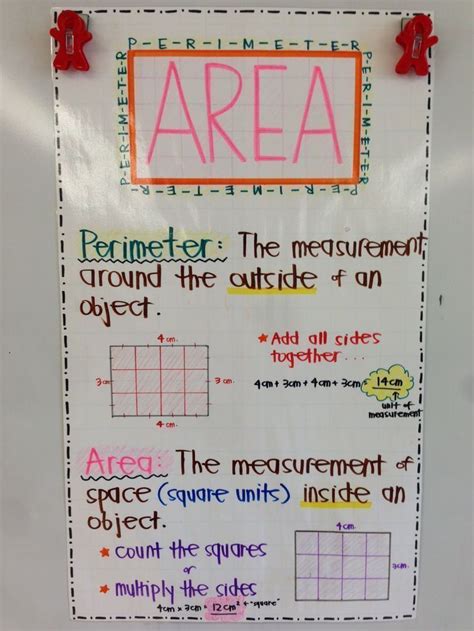 P-E-R-I-M-E-T-E-R
P-E-R-I-M-E-T-E-R
AREA
P-E-R-I-M-E-T-E-R
P-E-R-I-M-E-T-E-R
Perimeter: The measurement
around the outside of an
object.
4 cm.
3 cm
3 cm
4 cm.
* Add all sides
together...
4cm + 3cm + 4cm + 3cm = 14cm
unit of
measurement
Area: The measurement of
space (square units) inside an
object.
* count the squares
or
* multiply the sides
4cm x 3cm = 12cm² ← "square"
4cm.
3cm.